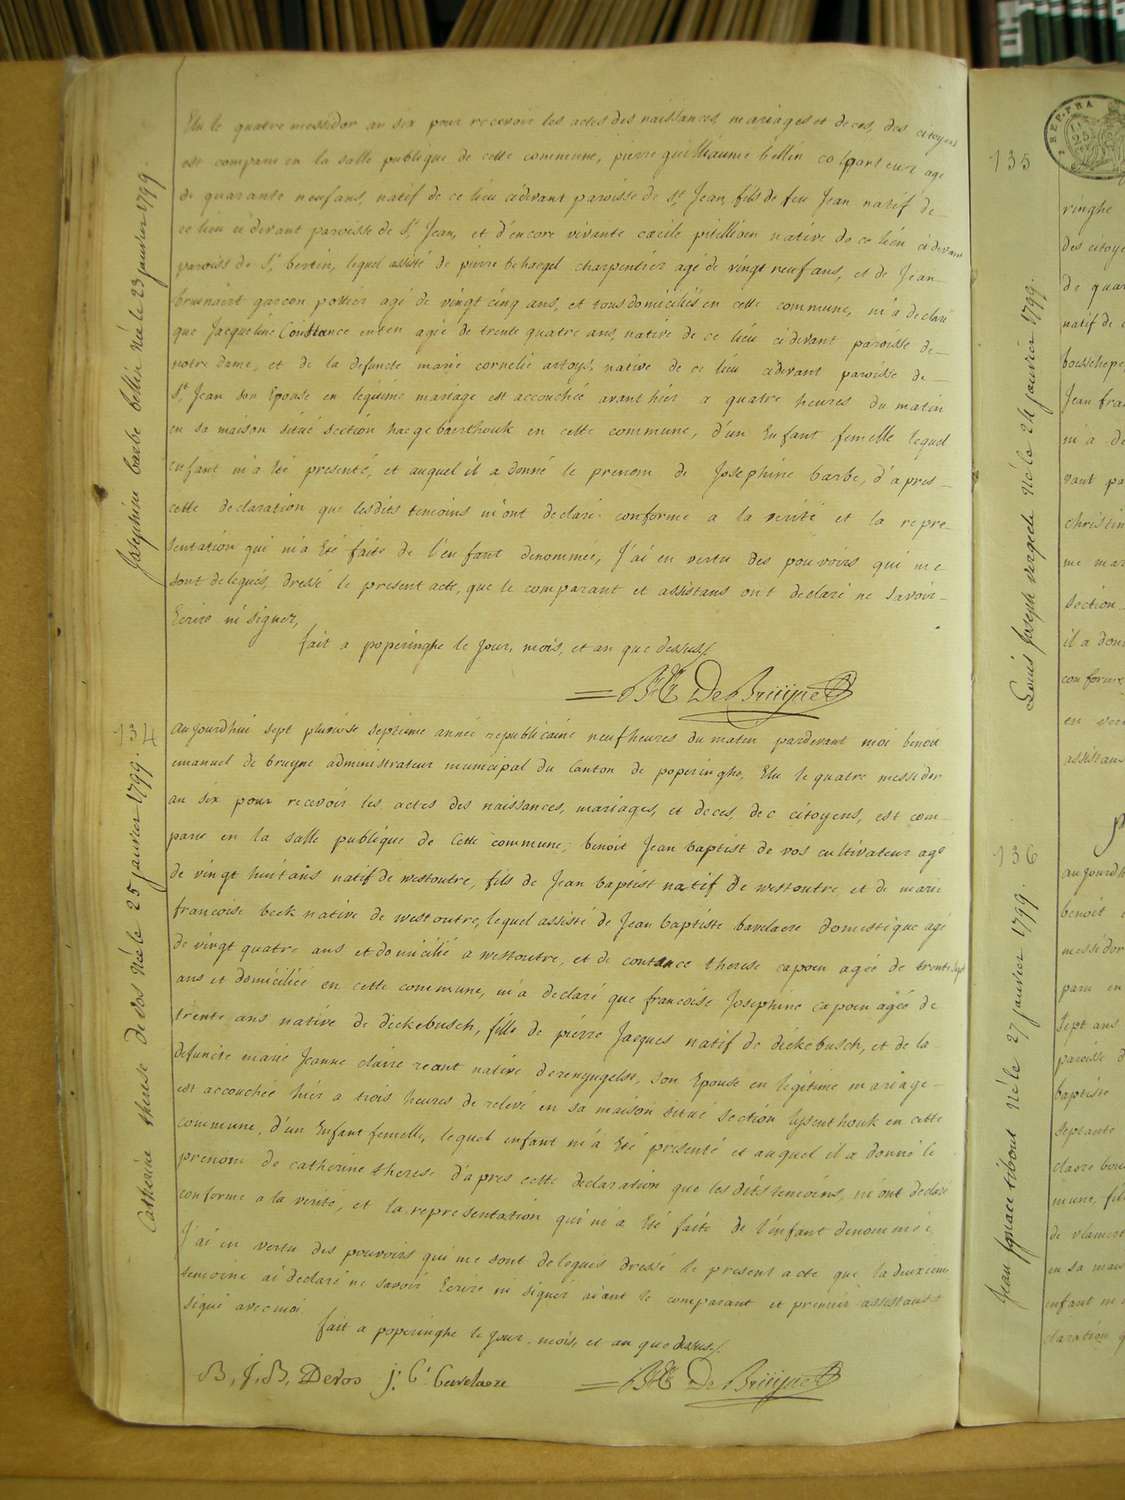 Elu le quatre messidor an six pour recevoir les actes des naissances, mariages et deces, des citoyens
est comparu en la salle publique de cette commune, pierre guilliaume bellin colporteur agé
de quarante neuf ans, natif de ce lieu cidevant paroisse de St Jean, fils de feu Jean natif de
ce lieu cidevant paroisse de St Jean, et d'encore vivante cecile pitillioen native de ce lieu cidevant
paroiss de St bertin, lequel assisté de pierre behaegel charpentier agé de vingt neuf ans, et de Jean
brunairt garçon potier agé de vingt cinq ans, et tous domiciliés en cette commune, m'a declaré
que Jacqueline Constance enten agée de trente quatre ans, native de ce lieu cidevant paroisse de
notre dame, et de la defuncte marie cornelie artoys, native de ce lieu cidevant paroisse de
St Jean son Epouse en legitime mariage est accouchée avant hier a quatre heures du matin
en sa maison situé section haegebaerthouk en cette commune, d'un Enfant femelle lequel
enfant m'a Eté presenté, et auquel il a donné le prenom de Josephine barbe, d'apres
cette declaration que lesdits temoins m'ont declaré conforme a la verité et la repre-
sentation qui m'a Eté faite de l'enfant denommée, J'ai en vertu des pouvoirs qui me
sont delegués, dressé le present acte, que le comparant et assistans ont declaré ne savoir
Ecrire ni signer,
fait a poperinghe le Jour, mois, et an que dessus/.
De Bruijne
Josephine barbe bellin Née le 23 janvier 1799
134
Aujourdhui sept pluviose septieme année republicaine neuf heures du matin pardevant moi benoit
emanuel de bruyne administrateur municipal du Canton de poperinghe, Elu le quatre messidor
an six pour recevoir les actes des naissances, mariages, et deces, des citoyens, est com-
paru en la salle publique de Cette commune, benoit Jean baptist de vos cultivateur agé
de vingt huit ans natif de westoutre, fils de Jean baptist natif de westoutre et de marie
francoise beek native de westoutre, lequel assisté de Jean baptiste bavelaere domestique agé
de vingt quatre ans et domicilié a westoutre, et de contance therese capoen agée de trente sept
ans et domiciliée en cette commune, m'a declaré que francoise Josephine capoen agée de
trente ans native de dickebusch, fille de pierre Jacques natif de dickebusch, et de la
defuncte marie Jeanne claire reant native derenyngelst, son Epouse en legitime mariage
est accouchée hier a trois heures de relevé en sa maison situé section lysenthouk en cette
commune, d'un Enfant femelle, lequel enfant m'a Eté presenté et auquel il a donné le
prenom de catherine therese d'apres cette declaration que lesdits temoins, m'ont declaré
conforme a la verité, et la representation qui m'a Eté faite de l'enfant denommée
J'ai en vertu des pouvoirs qui me sont delegués dressé le present acte que la deuxieme
temoine ai declaré ne savoir Ecrire ni signer aiant le comparant et premier assistants
signé avec moi.
fait a poperinghe le Jour, mois, et an que dessus/.
B, J, B, Devos
De Bruijne
Catherine therese de vos Née le 25 janvier 1799.
135
REP. FRA
25
ringhe
des citoye
de quar
natif de
boesschepe
Jean fra
m'a de
vant pa
christin
me mar
section
il a don
conforme
en ver
assistan
Louis Joseph vergaele Né le 24 janvier 1799.
136
aujourdh
benoit
messidor
paru en
sept ans
paroisse d
baptiste
septante
claere bou
mune, fil
de vlamert
en sa mais
enfant m
claration q
Jean Ignace tibout Né le 27 janvier 1799.